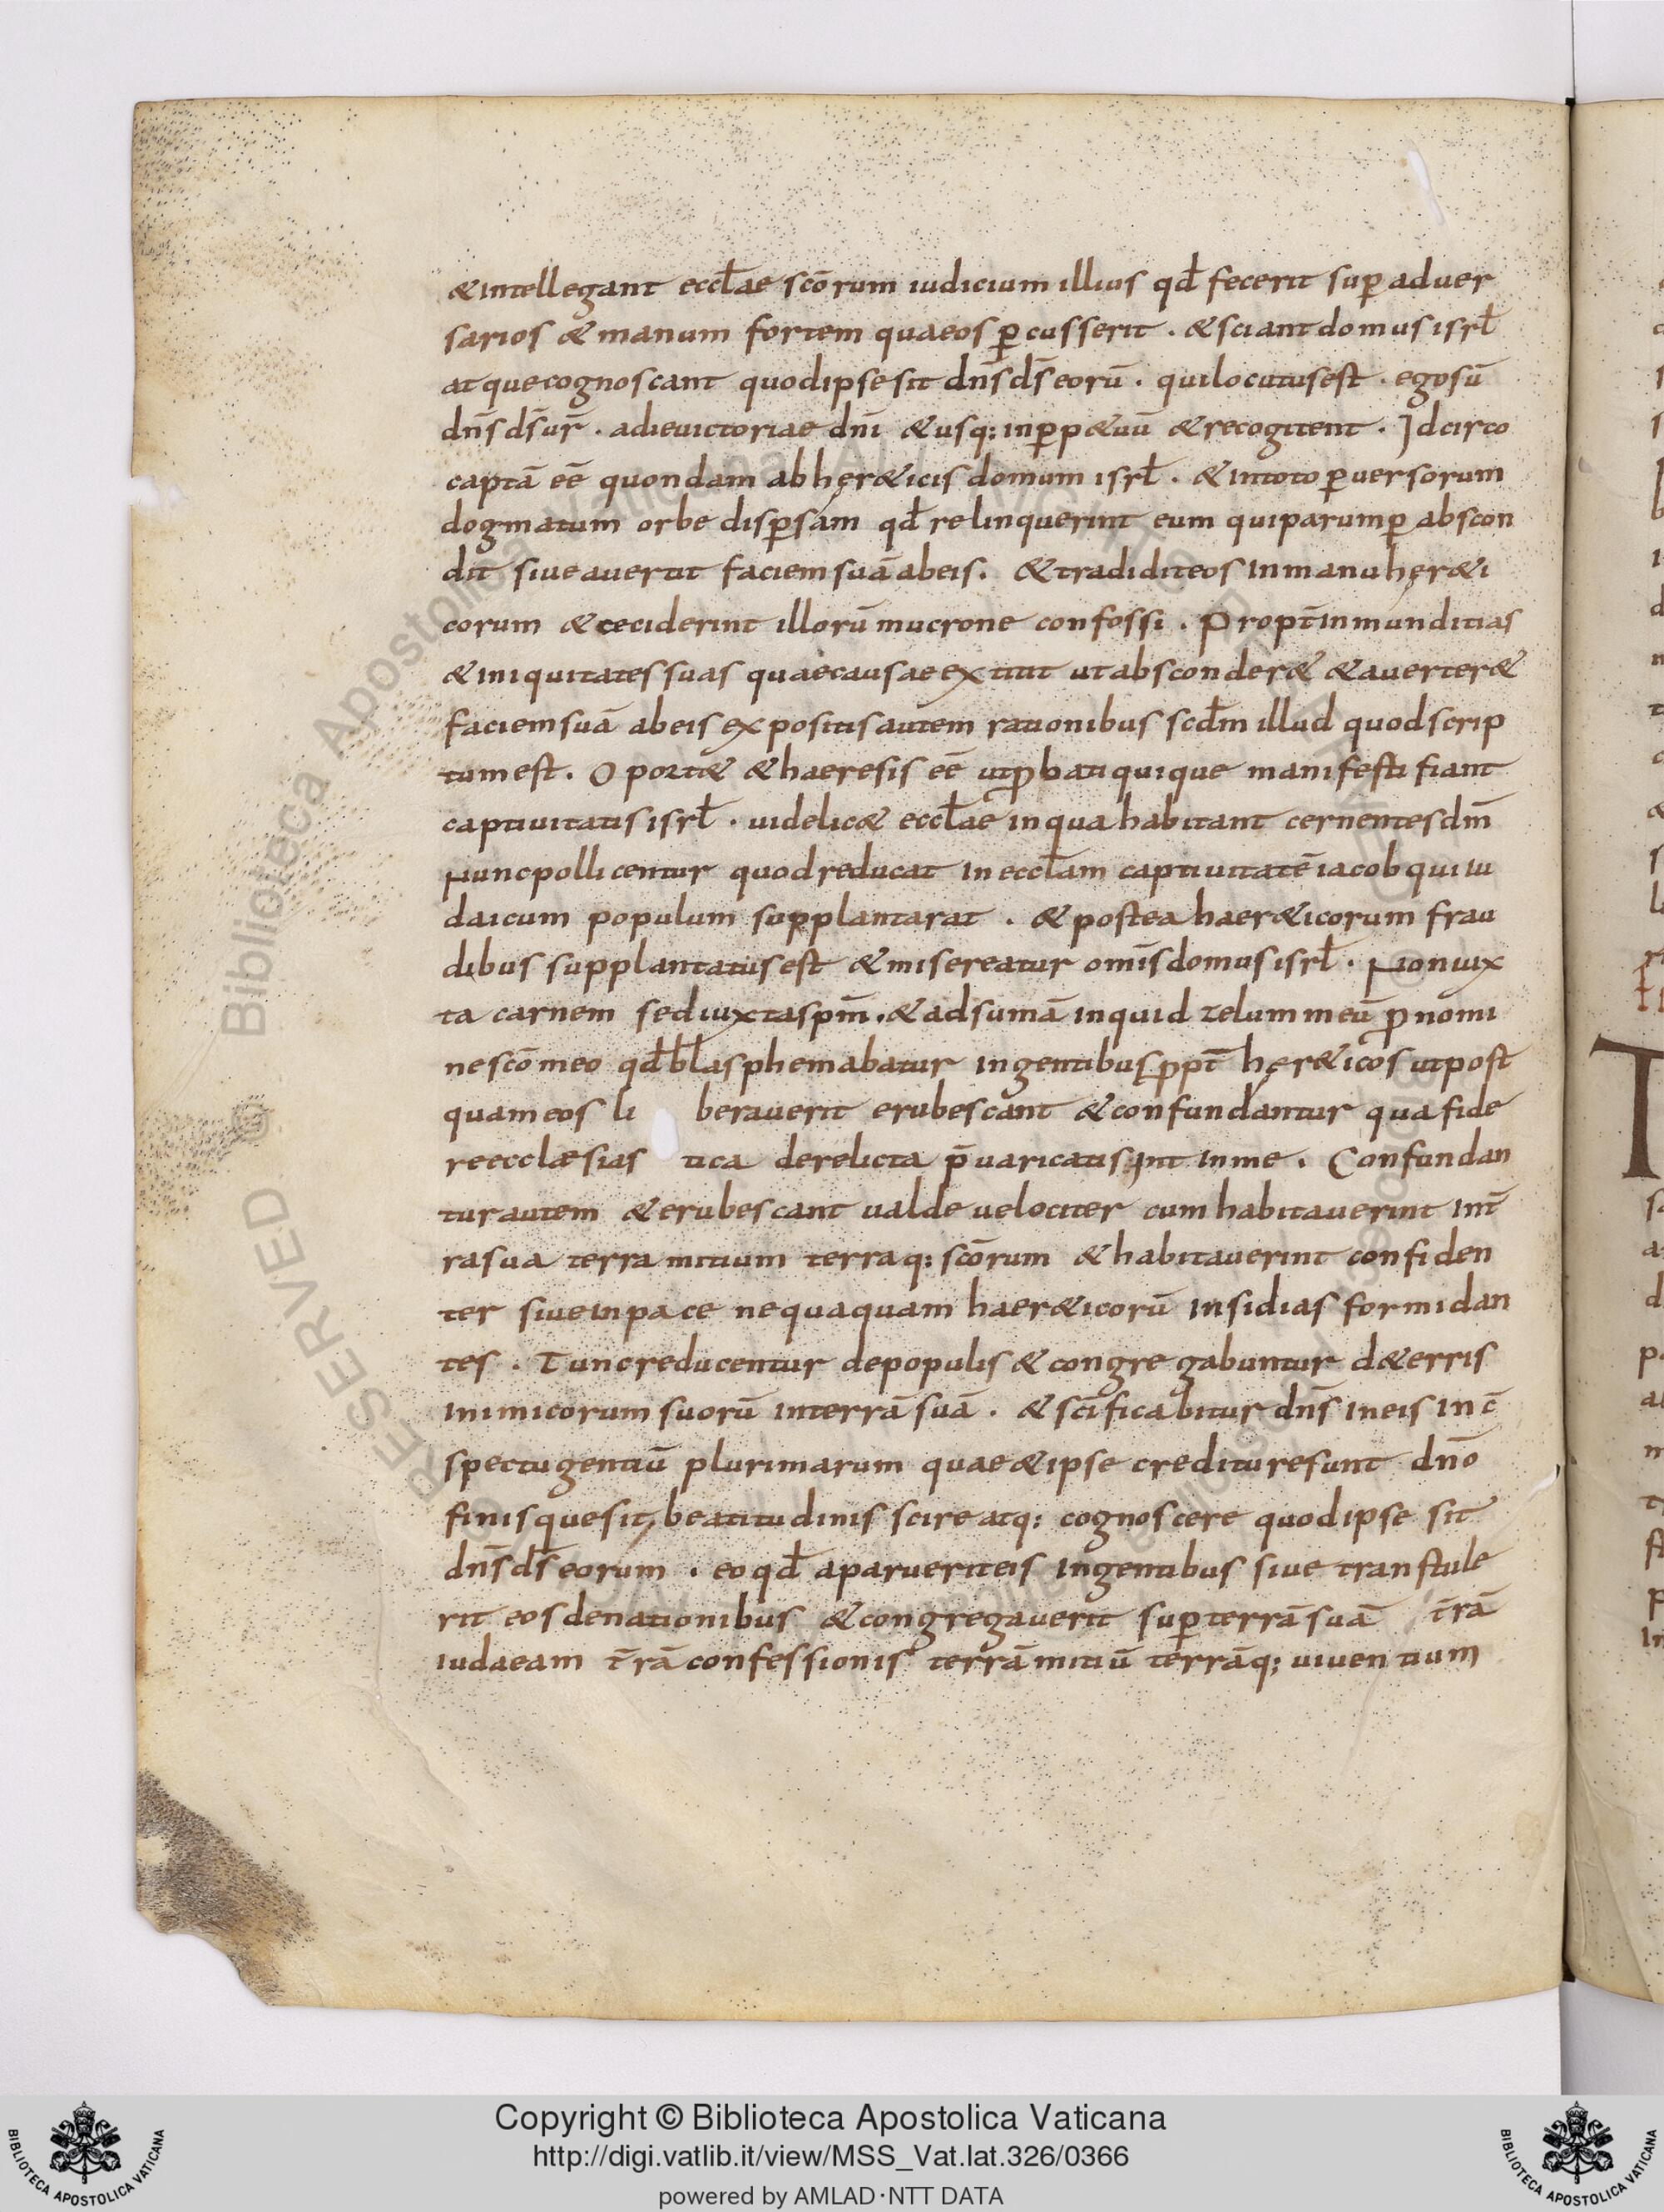 &intellegant eccl̄ae scōrum iudicium illius qd̄ fecerit sup̱ aduer
sarios & manum fortem quaeos p̱cusserit . &sciant domus isrl̄
atque cognoscant quod ipse sit dn̄s ds̄ eorū . qui locutus est . ego sū
dn̄s ds̄ ur̄ . a die uictoriae dn̄i & usq; inp̱p&uū & recogitent . Idcirco
captā eē quondam ab hęr&icis domum isrl̄ . & intoto p̱uersorum
dogmatum orbe disp̱sam qd̄ relinquerint eum qui parump̱ abscon
dit siue auertit faciem suā ab eis . & tradidit eos in manu hęr&i
corum & ceciderint illorū mucrone confossi . Propt̄ inmunditias
& iniquitates suas quae causae extitit ut absconder& & auerter&
faciem suā ab eis expositis autem rationibus scd̄m illud quod scrip
tum est . Oport& & haeresis eē ut ꝓbati quique manifesti fiant
captiuitatis isrl̄ . uidelic& eccl̄ae in qua habitant cernentes dm̄
Nunc pollicentur quod reducat in eccl̄am captiuitatē iacob qui iu
daicum populum supplantarat . & postea haer&icorum frau
dibus supplantatus est & misereatur omīs domus isrl̄ . Non iux
ta carnem sed iuxta spm̄ . & adsumā inquid zelum meū ꝓ nomi
ne scō meo qd̄ blasphemabatur in gentibus ꝓpt̄ hęr&icos ut post
quam eos li berauerit erubescant & confundantur qua fide
re ecclæsias tica derelicta p̄uaricati sunt in me . Confundan
tur autem & erubescant ualde uelociter cum habitauerint int̄
ra sua terra mitium terraq; scōrum & habitauerint confiden
ter siue in pace nequaquam haer&icorū insidias formidan
tes . Tunc reducentur de populis & congregabuntur d&erris
inimicorum suorū in terrā suā . & scīficabitur dn̄s in eis in c̄
spectu gentiū plurimarum quae & ipse crediture sunt dn̄o
finisque sit beatitudinis scire atq; cognoscere quod ipse sit
dn̄s ds̄ eorum . eo qd̄ aparuerit eis in gentibus siue transtule
rit eos de nationibus & congregauerit sup̱ terrā suā t̄rā
iudaeam t̄rā confessionis terrā mitiū terrāq; uiuentium
Copyright © Biblioteca Apostolica Vaticana
http://digi.vatlib.it/view/MSS_Vat.lat.326/0366
powered by AMLAD·NTT DATA
BIBLIOTECA APOSTOLICA VATICANA
BIBLIOTECA APOSTOLICA VATICANA